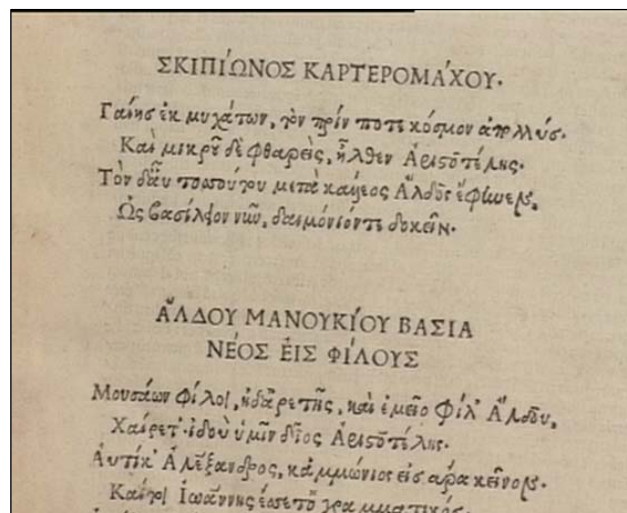 ΣΚΙΠΙΩΝΟΣ ΚΑΡΤΕΡΟΜΆΧΟΥ.
Γαίης ἐκ μυχάτων, τὸν πρίν ποτε κόσμον
Καὶ μικροῦ δὲ φθαρεὶς, ἦλθεν Ἀριστοτέλης.
Τὸν μετὰ Ἄλδος
Ὡς νῦν, δαιμόνιόντε δοκεῖν.
ἌΛΔΟΥ ΜΑΝΟΥΚΊΟΥ ΒΑΣΙΑ
ΝΈΟΣ ἘΙΣ ΦΊΛΟΥΣ
Μουσάων φίλοι, ἠδ' ἀρετῆς, καὶ ἐμεῖο φίλ' Ἄλδου,
Χαίρετ' ἰδοὺ ὑμῖν δῖος Ἀριστοτέλης.
Ἀυτίκ' Ἀλέξανδρος, κἀμμώνιος εἰς ἄρα κεῖνον.
Καίτοι Ἰωάννης ἕσετο γραμματικός.